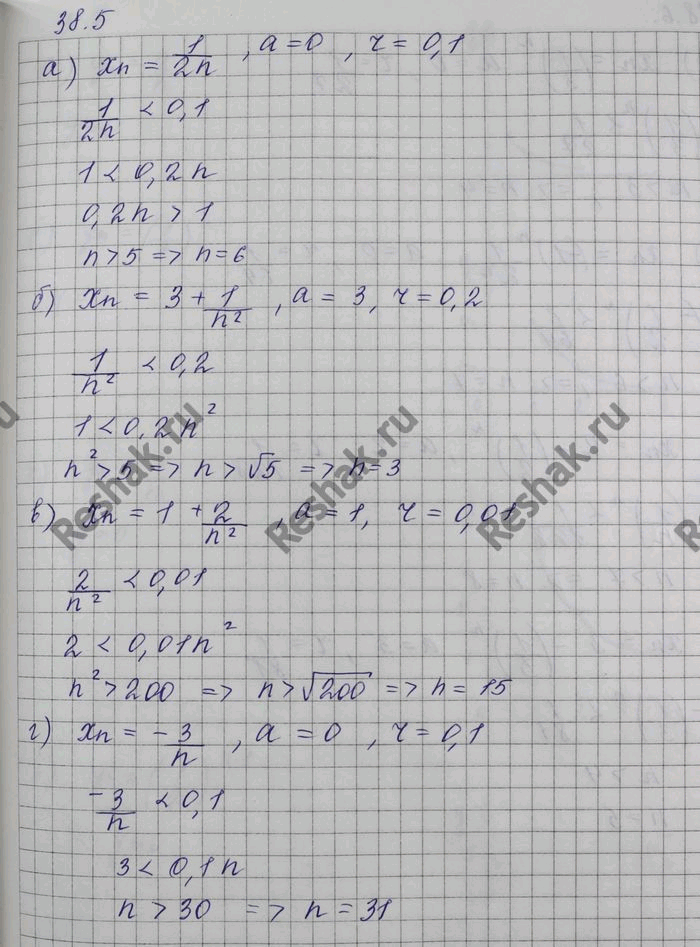 38.5
а) xn = 1/2n , a = 0 , r = 0,1
1/2n < 0,1
1 < 0,2n
0,2n > 1
n > 5 => n = 6
б) xn = 3 + 1/n² , a = 3, r = 0,2
1/n² < 0,2
1 < 0,2n²
n² > 5 => n > √5 => n = 3
в) xn = 1 + 2/n² , a = 1, r = 0,01
2/n² < 0,01
2 < 0,01n²
n² > 200 => n > √200 => n = 15
г) xn = - 3/n , a = 0 , r = 0,1
- 3/n < 0,1
3 < 0,1n
n > 30 => n = 31
Reshak.ru
Reshak.ru
Reshak.ru